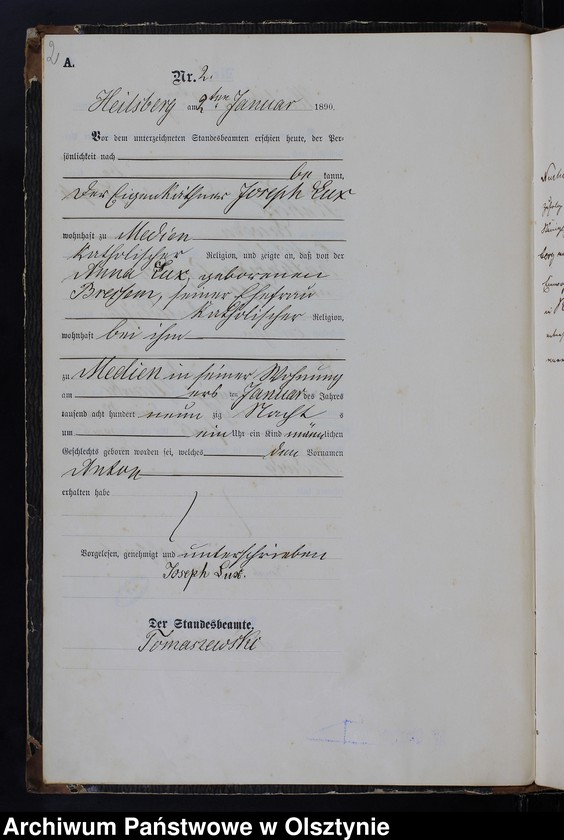 2
A.
Nr. 2.
Heilsberg am 2ten Januar 1890.
Vor dem unterzeichneten Standesbeamten erschien heute, der Per-
sönlichkeit nach
be kannt,
der Eigenkäthner Joseph Lux
wohnhaft zu Medien
katholischer Religion, und zeigte an, daß von der
Anna Lux, geborenen
seiner Ehefrau
katholischer Religion,
wohnhaft bei ihm
zu Medien in seiner Wohnung
am ersten Januar des Jahres
tausend acht hundert neun zig Nachts
um ein Uhr ein Kind männlichen
Geschlechts geboren worden sei, welches den Vornamen
Anton
erhalten habe
Vorgelesen, genehmigt und unterschrieben
Joseph Lux.
Der Standesbeamte.
Tomaszewski
Archiwum Państwowe w Olsztynie